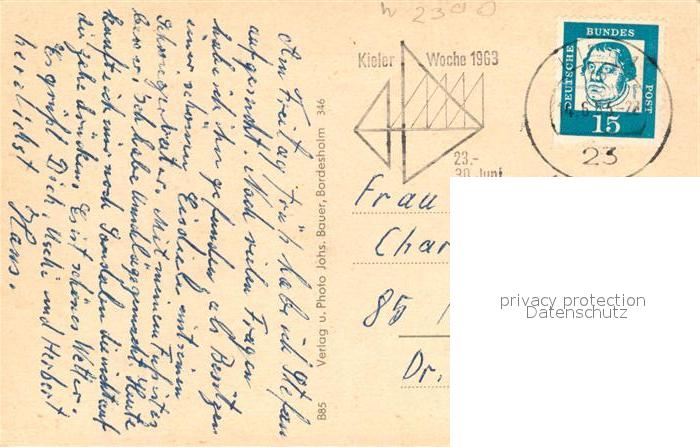 h 2300
Kieler Woche 1963
23.–
30. Juni
DEUTSCHE BUNDES POST
15
23
Am Freitag früh habe ich Stefan
aufgesucht. Nach vielen Fragen
habe ich ihn gefunden als Besitzer
einer schönen Eisdiele mit seinem
Schwiegervater. Mit meinem Fuß ist es
besser. Ich habe Umschläge gemacht. Heute
kaufte ich mir noch Sandalen die nicht auf
die Zehe drücken. Es ist schönes Wetter.
Es grüßt Dich, Uschi und Herbert
herzlichst
Hans.
B85 Verlag u. Photo Johs. Bauer, Bordesholm 346
Frau
Char
85
Dr.
privacy protection
Datenschutz